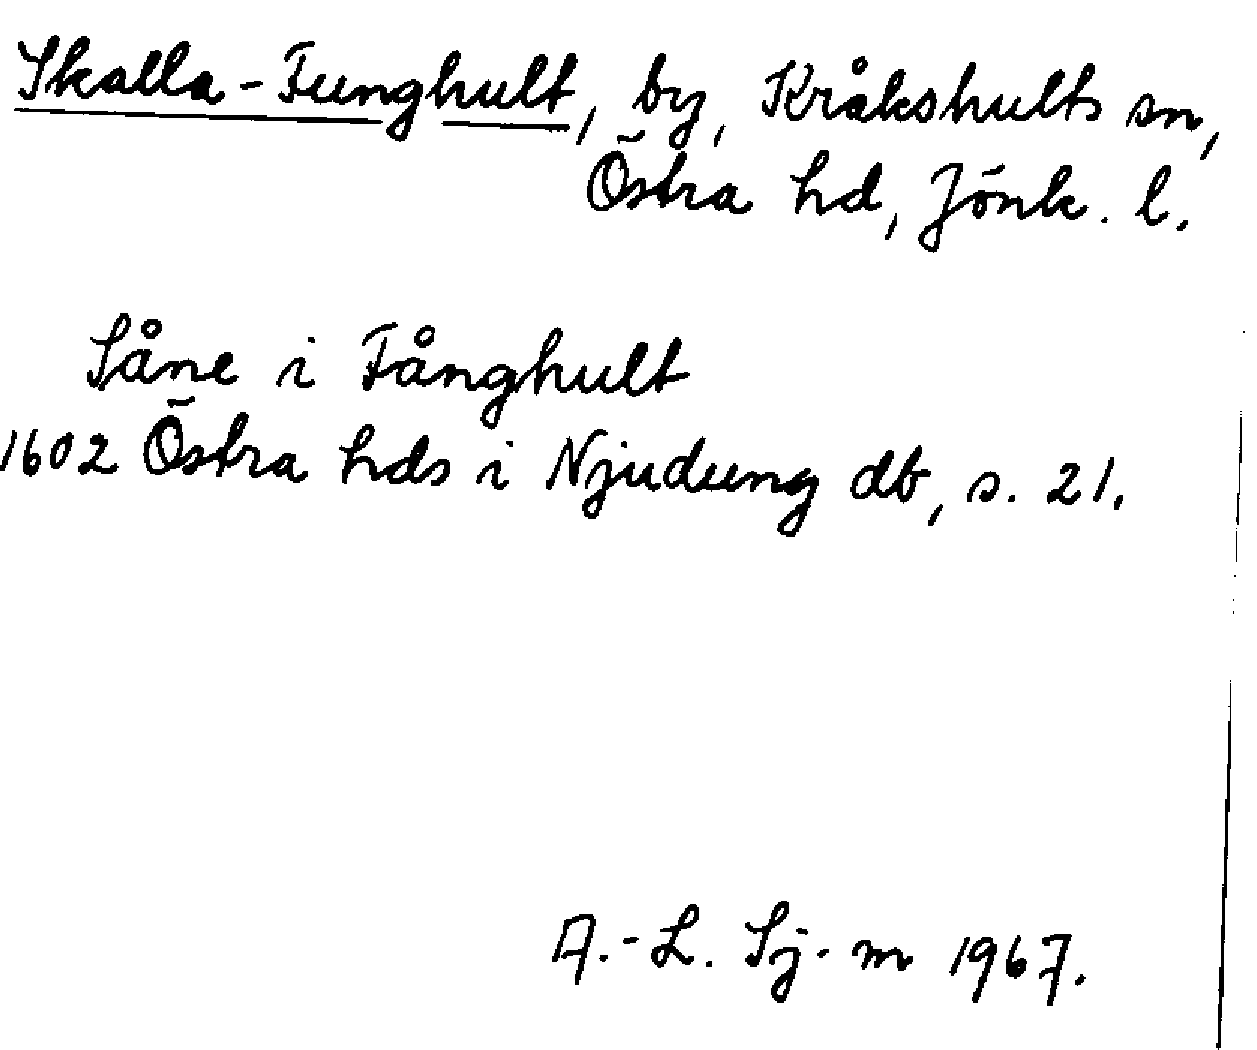 Skalla-Funghult, by, Kråkshults sn,
Östra hd, Jönk. l.
Såne i Fånghult
1602 Östra hds i Njudung db, s. 21.
A.-L. Sj-m 1967.